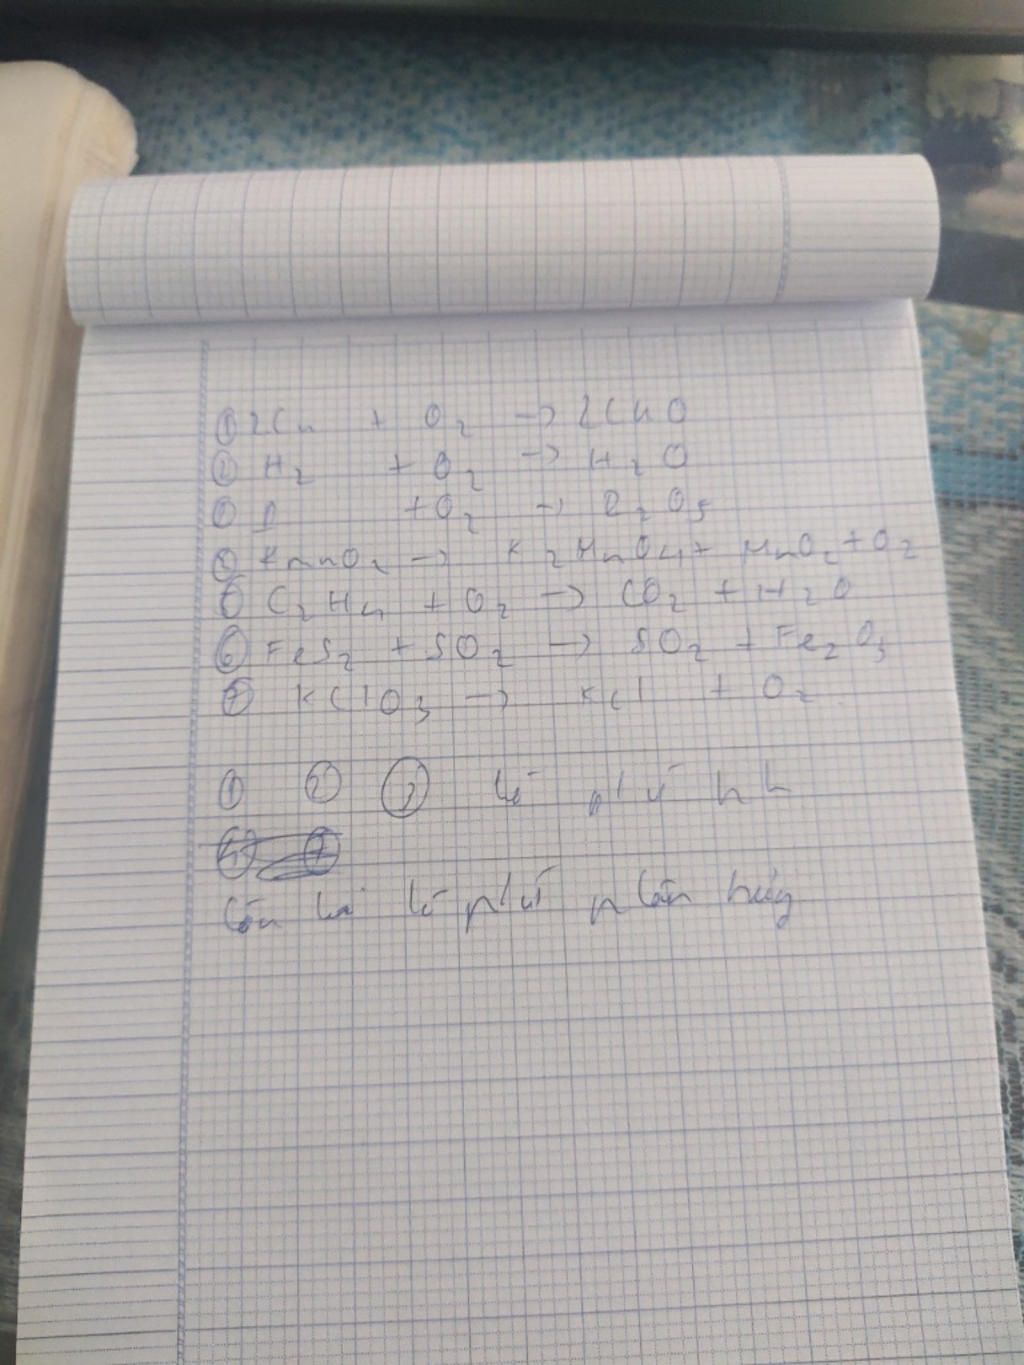 ① 2Cu + O₂ → 2CuO
② H₂ + O₂ → H₂O
③ P + O₂ → P₂O₅
④ KmnO₄ → K₂MnO₄ + MnO₂ + O₂
⑤ C₂H₄ + O₂ → CO₂ + H₂O
⑥ FeS₂ + SO₂ → SO₂ + Fe₂O₃
⑦ KClO₃ → KCl + O₂
① ② ③ là
còn lại là phân